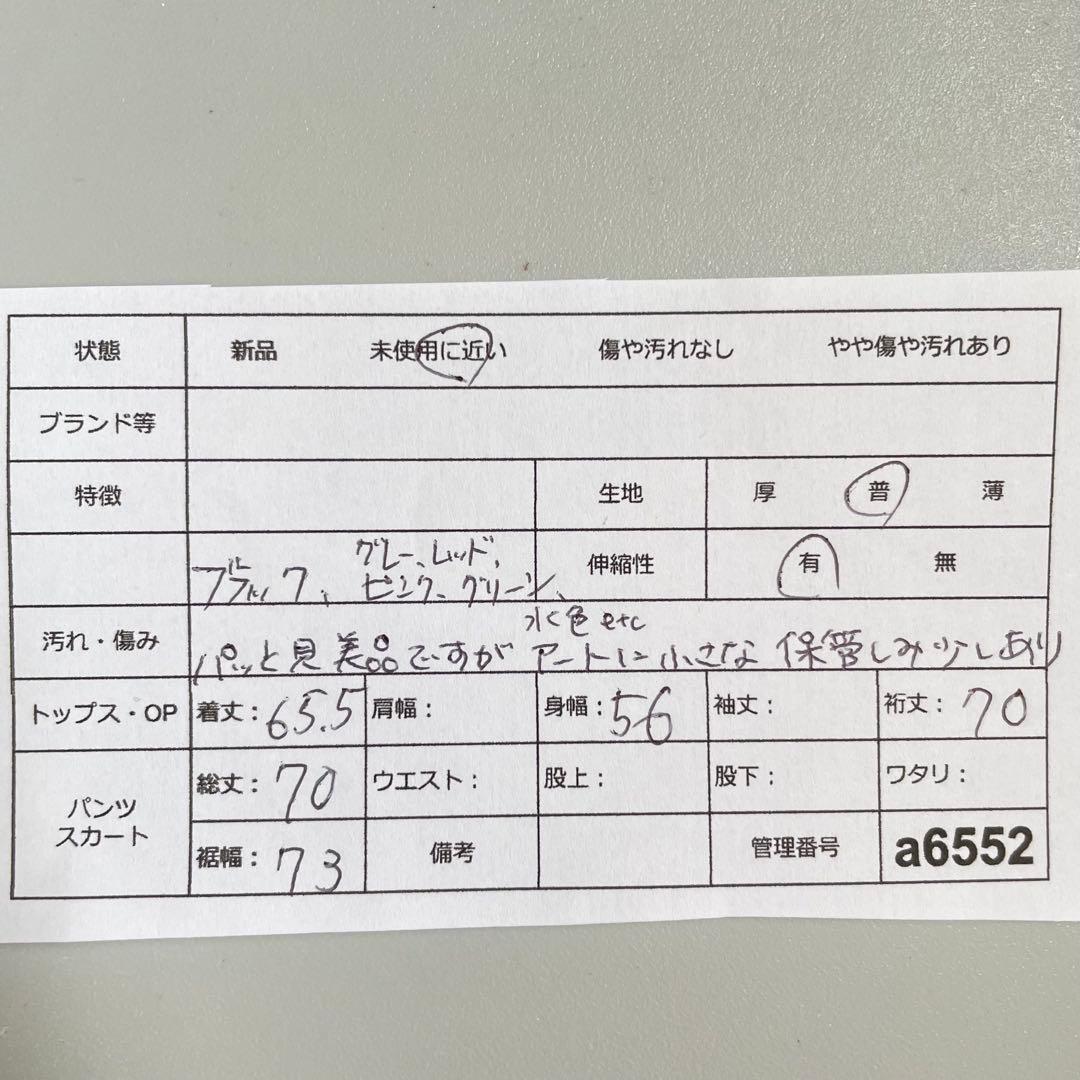 状態 新品 未使用に近い 傷や汚れなし やや傷や汚れあり
ブランド等
特徴 生地 厚 普 薄
グレー、レッド、
ブラック、ピンク、グリーン、 伸縮性 有 無
水色etc
汚れ・傷み パッと見美品ですが アートに小さな保管しみ少しあり
トップス・OP 着丈：65.5 肩幅： 身幅：56 袖丈： 裄丈：70
パンツ スカート 総丈：70 ウエスト： 股上： 股下： ワタリ：
裾幅：73 備考 管理番号 a6552